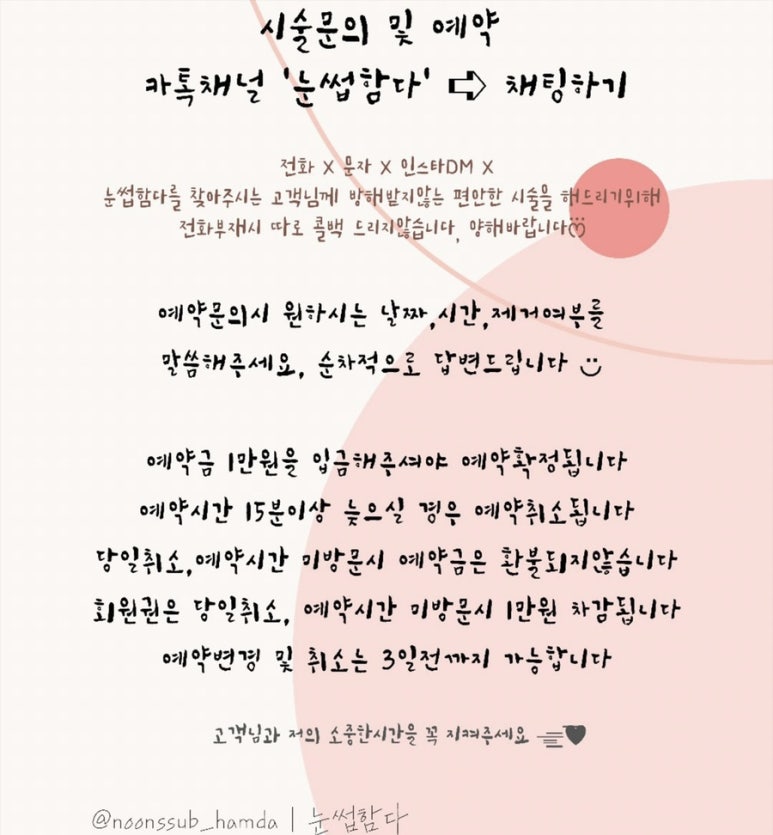 시술문의 및 예약
카톡채널 '눈썹함다' ➪ 채팅하기
전화 X 문자 X 인스타DM X
눈썹함다를 찾아주시는 고객님께 방해받지않는 편안한 시술을 해드리기위해
전화부재시 따로 콜백 드리지않습니다, 양해바랍니다
예약문의시 원하시는 날짜,시간,제거여부를
말씀해주세요, 순차적으로 답변드립니다
예약금 1만원을 입금해주셔야 예약확정됩니다
예약시간 15분이상 늦으실 경우 예약취소됩니다
당일취소,예약시간 미방문시 예약금은 환불되지않습니다
회원권은 당일취소, 예약시간 미방문시 1만원 차감됩니다
예약변경 및 취소는 3일전까지 가능합니다
고객님과 저의 소중한시간을 꼭 지켜주세요
@noonssub_hamda | 눈썹함다